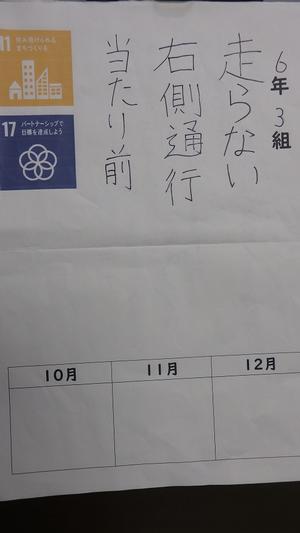 6年3組
走らない
右側通行
当たり前
11 住み続けられる
まちづくりを
17 パートナーシップで
目標を達成しよう
10月 11月 12月